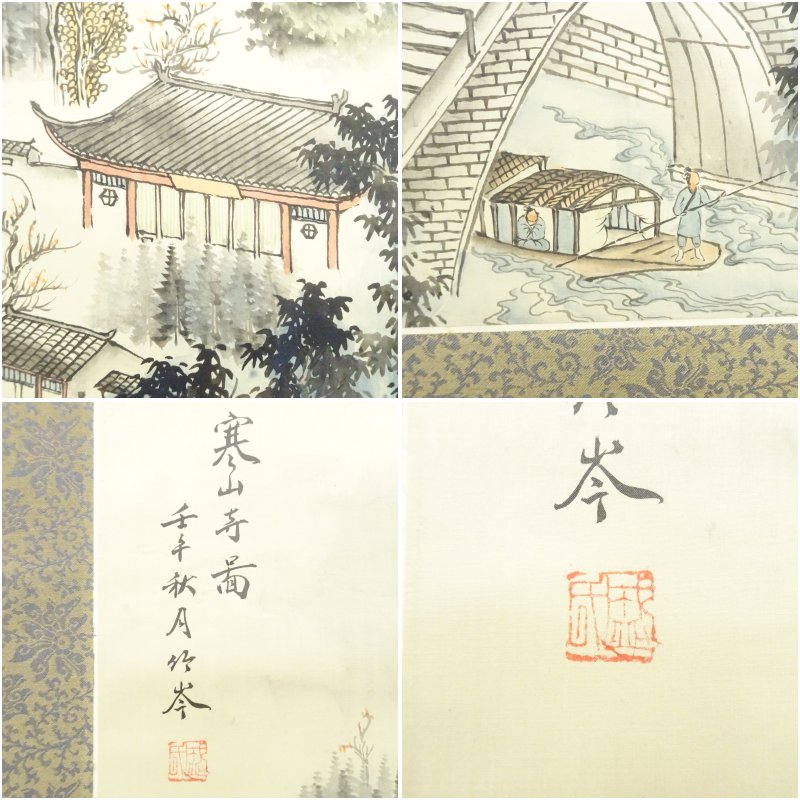 寒山寺啚
壬午秋月竹岑
岑